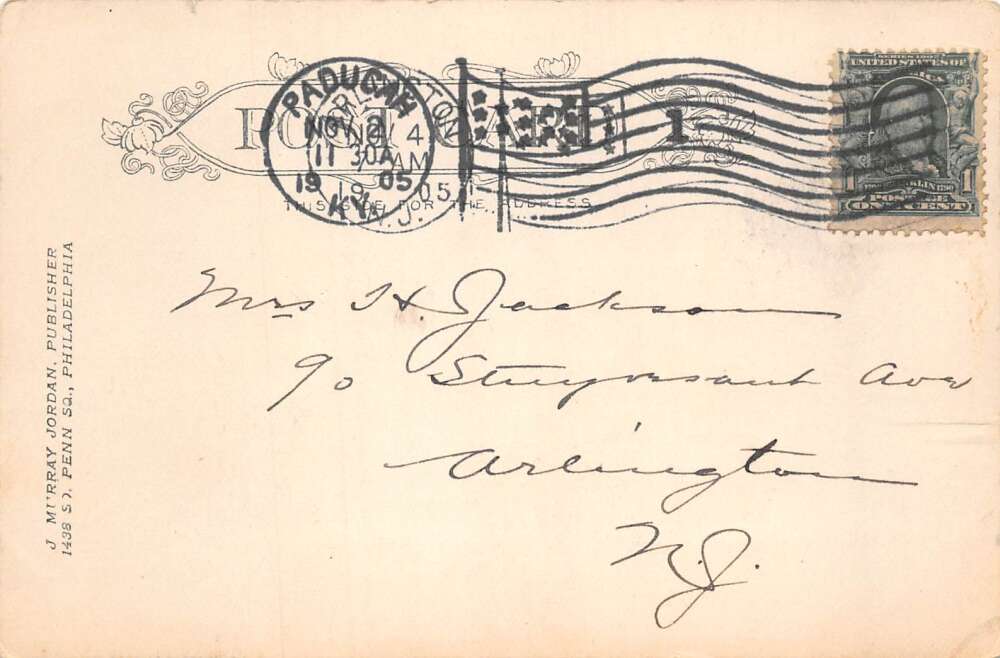 POST CARD
THIS SIDE FOR THE ADDRESS
PADUCAH
NOV 2
11 30A
1905
KY.
ARLINGTON
NOV 4
AM
1905
N.J.
1
SERIES 1902
UNITED STATES OF AMERICA
1 FRANKLIN 1
POSTAGE
ONE CENT
Mrs H. Jackson
90 Stuyvesant Ave
Arlington
N.J.
J MURRAY JORDAN, PUBLISHER
1438 SO. PENN SQ., PHILADELPHIA